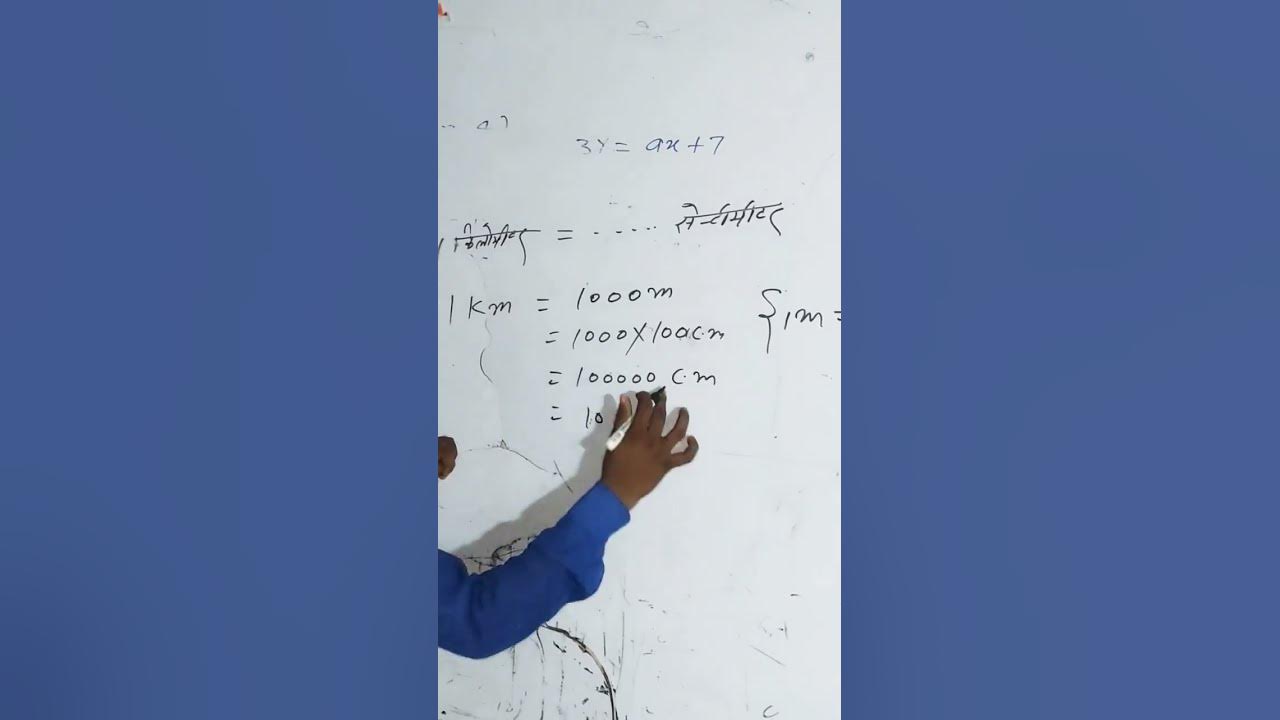 3Y = ax + 7
1 किलोमीटर = ..... सेन्टीमीटर
1 Km = 1000m {1m =
= 1000X100c.m
= 100000 c.m
= 10